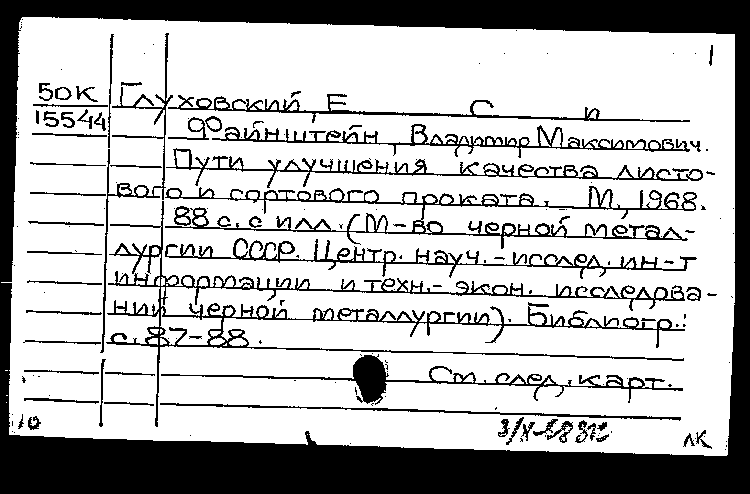 50К Глуховский, Е С и
15544 Файнштейн, Владимир Максимович.
Пути улучшения качества листо-
вого и сортового проката. М., 1968.
88 с. с илл. (М-во черной метал-
лургии СССР. Центр. науч.-исслед. ин-т
информации и техн.-экон. исследова-
ний черной металлургии). Библиогр.:
с. 87-88.
См. след. карт.
10
ЛК